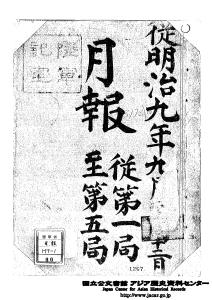 従明治九年九月
十二月
月報
従第一局
至第五局
1257
国立公文書館 アジア歴史資料センター
Japan Center for Asian Historical Records
http://www.jacar.go.jp